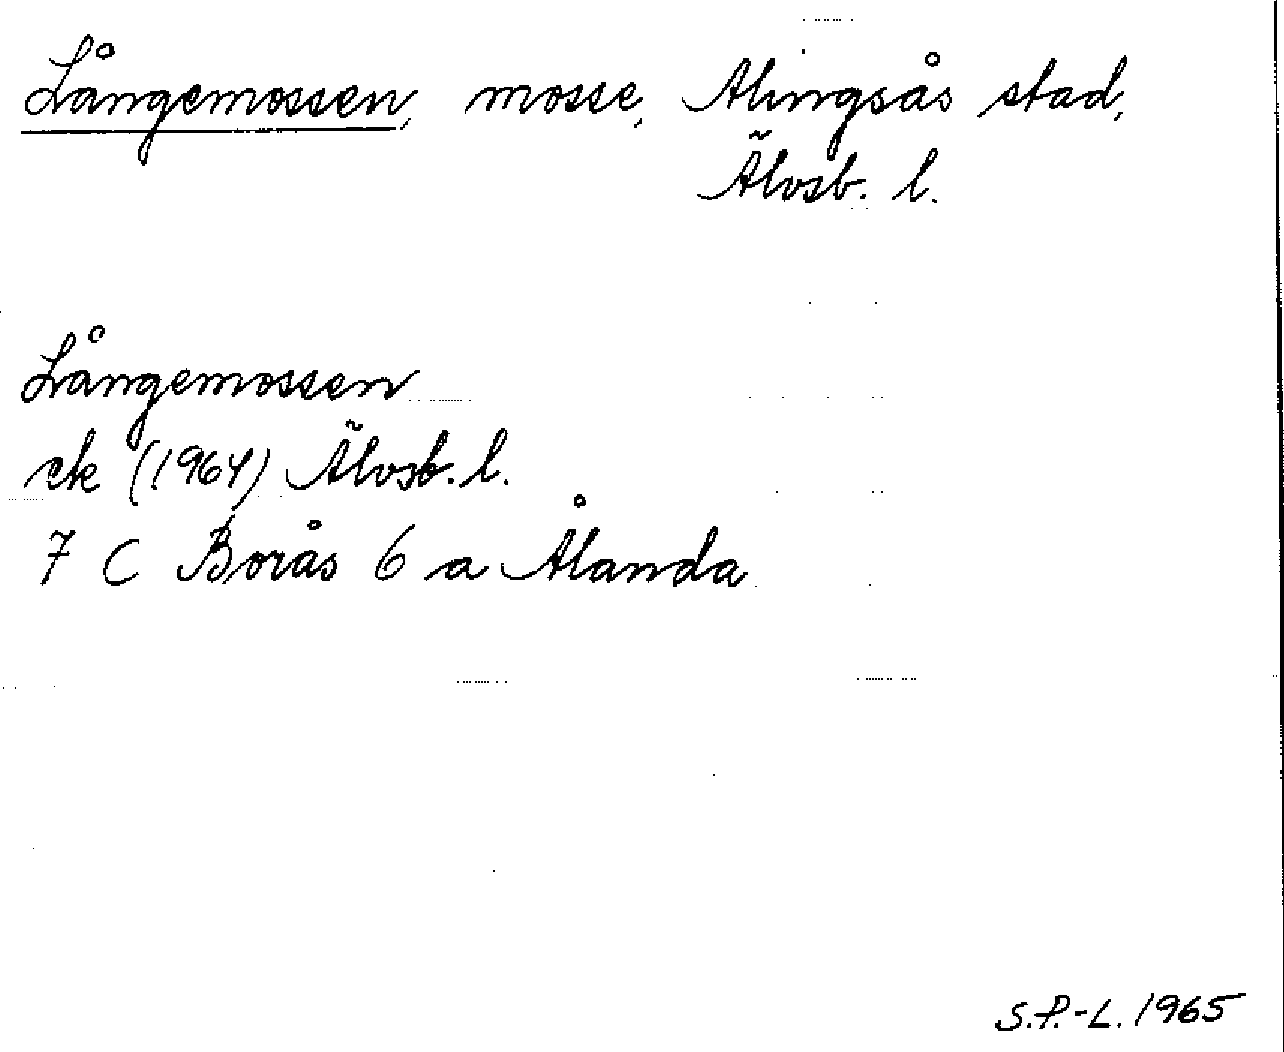 Långemossen, mosse, Alingsås stad,
Älvsb. l.
Långemossen
ek (1964) Älvsb. l.
7 C Borås 6 a Ålanda
S.P.-L. 1965